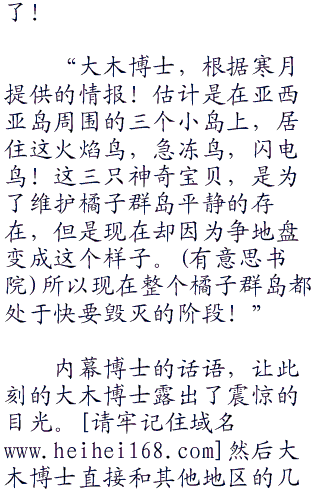 了！
“大木博士，根据寒月
提供的情报！估计是在亚西
亚岛周围的三个小岛上，居
住这火焰鸟，急冻鸟，闪电
鸟！这三只神奇宝贝，是为
了维护橘子群岛平静的存
在，但是现在却因为争地盘
变成这个样子。(有意思书
院)所以现在整个橘子群岛都
处于快要毁灭的阶段！”
内幕博士的话语，让此
刻的大木博士露出了震惊的
目光。[请牢记住域名
www.heihei168.com]然后大
木博士直接和其他地区的几